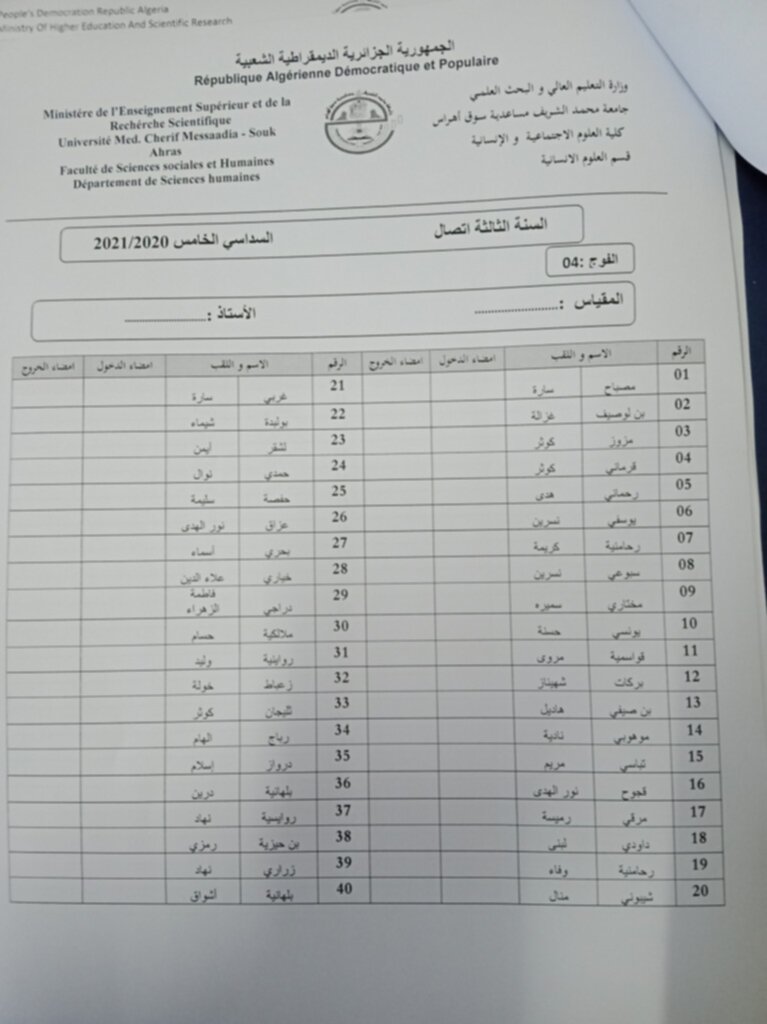 People's Democration Republic Algeria
Ministry Of Higher Education And Scientific Research
الجمهورية الجزائرية الديمقراطية الشعبية
République Algérienne Démocratique et Populaire
Ministére de l'Enseignement Supérieur et de la
Recherche Scientifique
Université Med. Cherif Messaadia - Souk
Ahras
Faculté de Sciences sociales et Humaines
Département de Sciences humaines
وزارة التعليم العالي و البحث العلمي
جامعة محمد الشريف مساعدية سوق أهراس
كلية العلوم الاجتماعية و الإنسانية
قسم العلوم الانسانية
السنة الثالثة اتصال السداسي الخامس 2021/2020
الفوج :04
المقياس :............................ الأستاذ :............................
الرقم الاسم و اللقب امضاء الدخول امضاء الخروج الرقم الاسم و اللقب امضاء الدخول امضاء الخروج
01 مصباح سارة 21 غربي سارة
02 بن لوصيف غزالة 22 بوليدة شيماء
03 مزوز كوثر 23 لشقر أيمن
04 قرماني كوثر 24 حمدي نوال
05 رحماني هدى 25 حفصة سليمة
06 يوسفي نسرين 26 عزاق نور الهدى
07 رحامنية كريمة 27 بحري أسماء
08 سبوعي نسرين 28 خياري علاء الدين
09 مختاري سميره 29 دراجي فاطمة الزهراء
10 يونسي حسنة 30 ملالكية حسام
11 قواسمية مروى 31 رواينية وليد
12 بركات شهيناز 32 زعباط خولة
13 بن صيفي هاديل 33 ثليجان كوثر
14 موهوبي نادية 34 رباح الهام
15 تباسي مريم 35 درواز إسلام
16 قجوح نور الهدى 36 بلهانية درين
17 مرقي رميسة 37 روايسية نهاد
18 داودي لبنى 38 بن حيزية رمزي
19 رحامنية وفاء 39 زراري نهاد
20 شيبوني منال 40 بلهانية أشواق